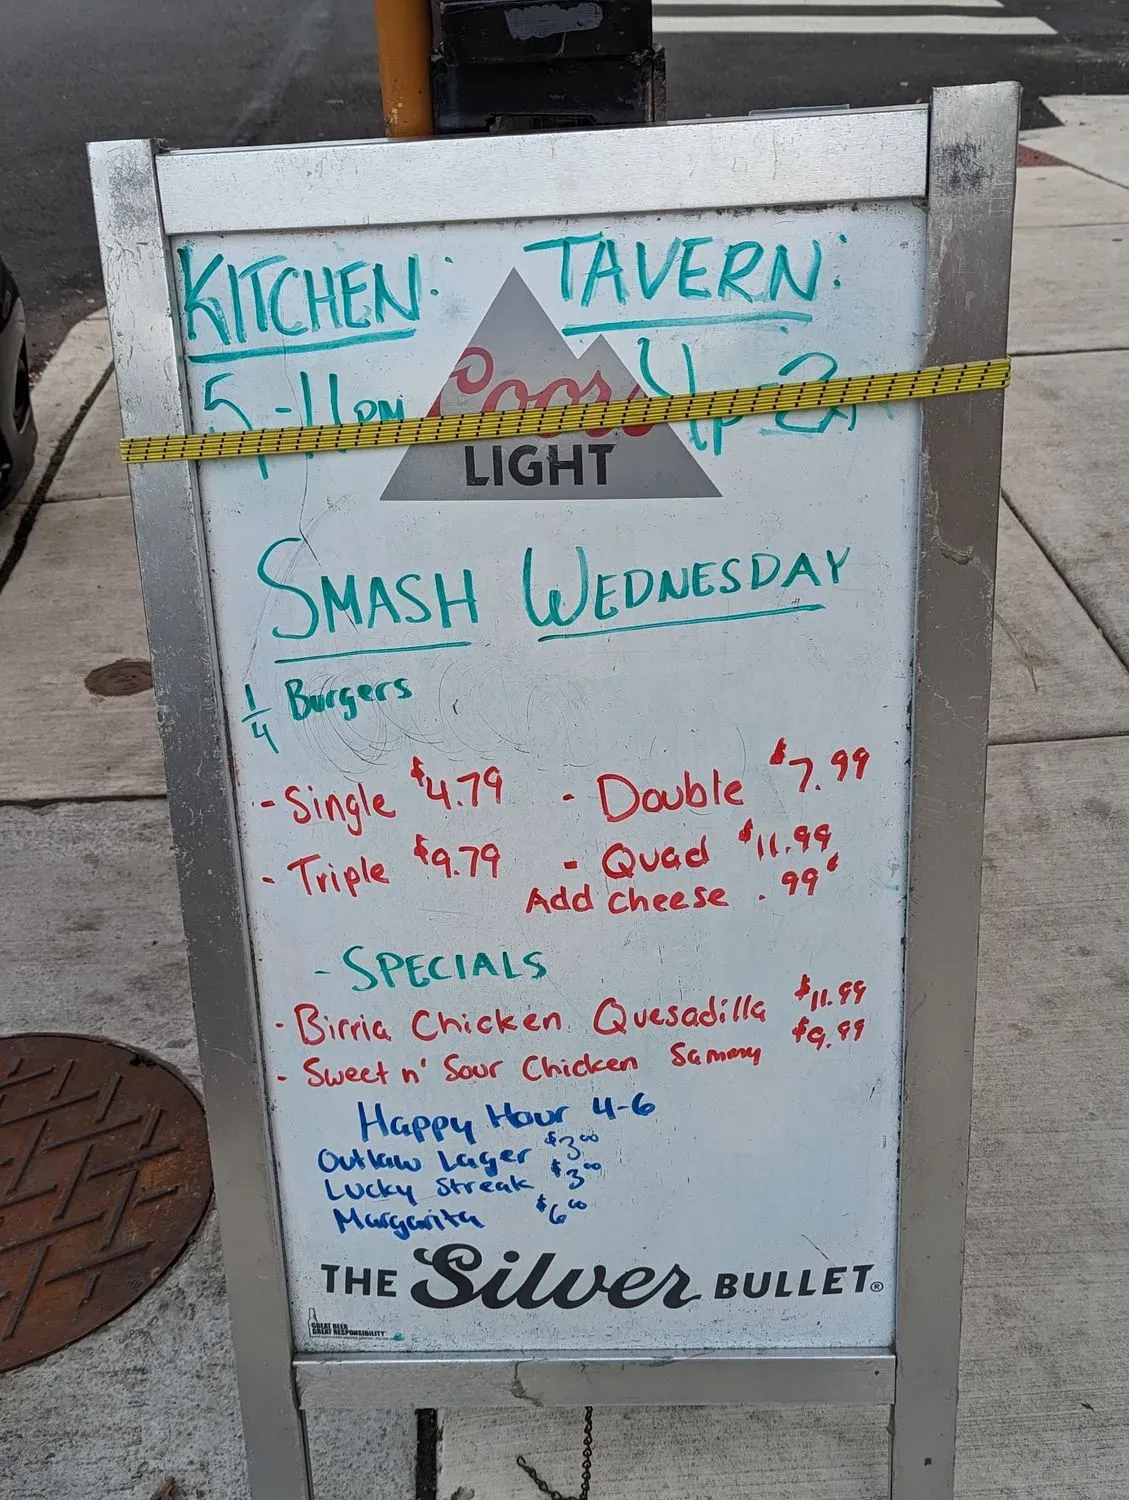 KITCHEN: TAVERN:
5 -11pm 4p 2a
Coors
LIGHT
SMASH WEDNESDAY
1/4 Burgers
- Single $4.79 - Double $7.99
- Triple $9.79 - Quad $11.99
Add cheese .99¢
- SPECIALS
- Birria Chicken Quesadilla $11.99
- Sweet n' Sour Chicken Sammy $9.99
Happy Hour 4-6
Outlaw Lager $3.00
Lucky Streak $3.00
Margarita $6.00
THE Silver BULLET®
GREAT BEER
GREAT RESPONSIBILITY